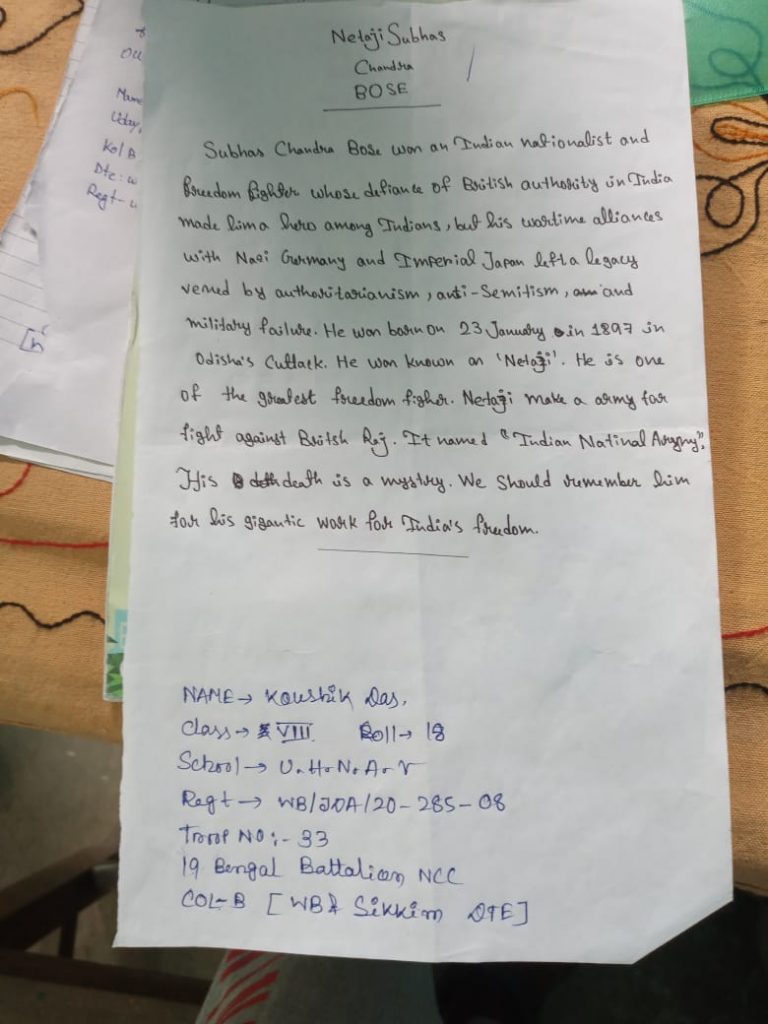 Netaji Subhas
Chandra
BOSE
Subhas Chandra Bose won an Indian nationalist and
freedom fighter whose defiance of British authority in India
made him a hero among Indians, but his wartime alliances
with Nazi Germany and Imperial Japan left a legacy
vexed by authoritarianism, anti-Semitism, and
military failure. He won born on 23 January in 1897 in
Odisha's Cuttack. He won known an 'Netaji'. He is one
of the greatest freedom figher. Netaji make a army for
fight against Britsh Raj. It named "Indian Natinal Army".
His death is a mystry. We should remember him
for his gigantic work for India's freedom.
NAME → Koushik Das,
Class → VIII Roll → 18
School → U.H.N.A.V
Regt → WB/JDA/20-285-08
Troop NO :- 33
19 Bengal Battalion NCC
COL-B [WB& Sikkim DTE]
Name
Uday,
Kol B
Dte: w
Regt-